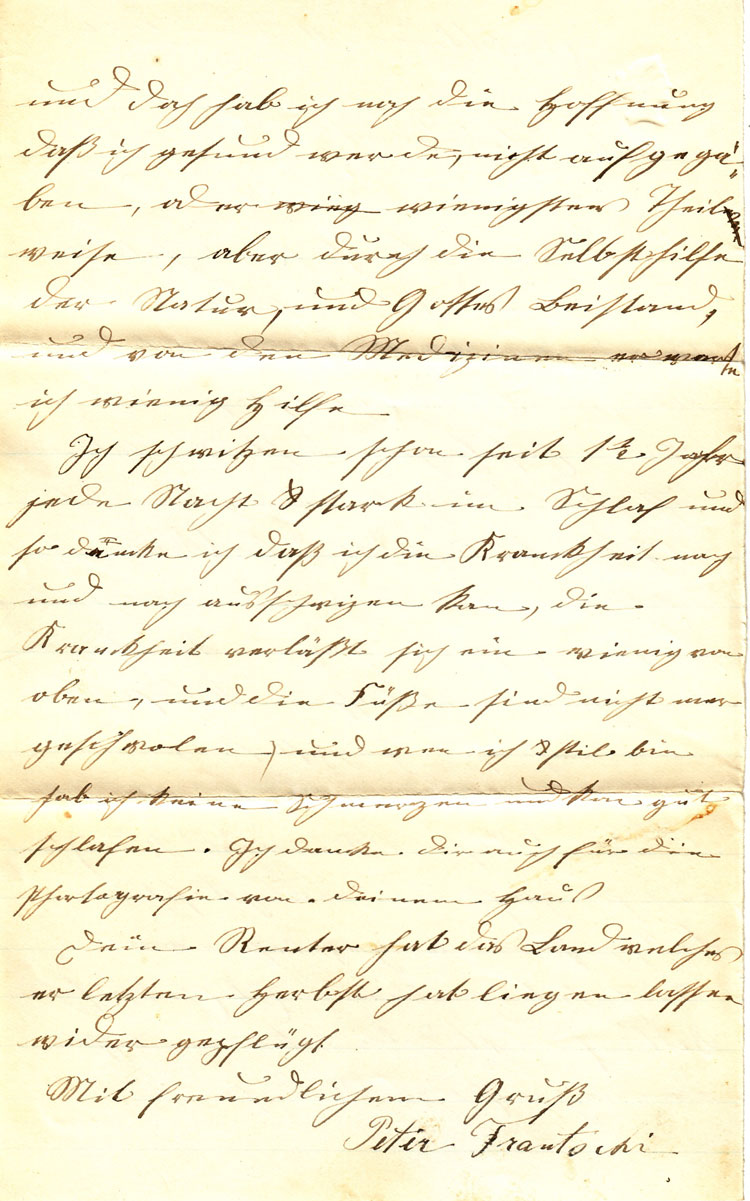 und doch hab ich noch die Hoffnung
daß ich gesund werde, nicht aufgegä-
ben, oder wienigstens Theil
weise, aber durch die Selbsthilfe
der Natur, und Gottes Beistand,
und von den Medizinen erwarte
ich wienig Hilfe
Ich schwitzen schon seit 1½ Jahr
jede Nacht stark im Schlaf und
so däncke ich daß ich die Kranckheit nach
und nach ausschwizen kan, die
Kranckheit verläßt sich ein wienig von
oben, und die Füße sind nicht mer
geschwolen, und wen ich stil bin
hab ich keine Schmerzen und kan gut
schlafen. Ich danke dir auch für die
Phortografie von deinem Haus
Dein Renter hat das Land welches
er letzten Herbst hat liegen lassen
wider gepflügt
Mit freundlichem Gruß
Peter Trautschi